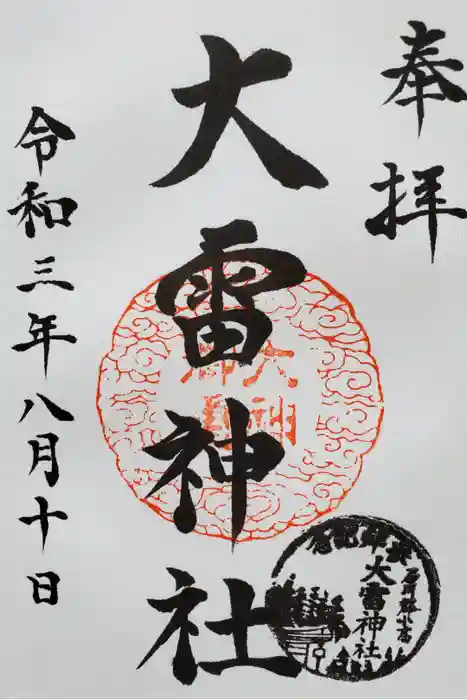 奉拝
大雷神社
令和三年八月十日
大雷神社